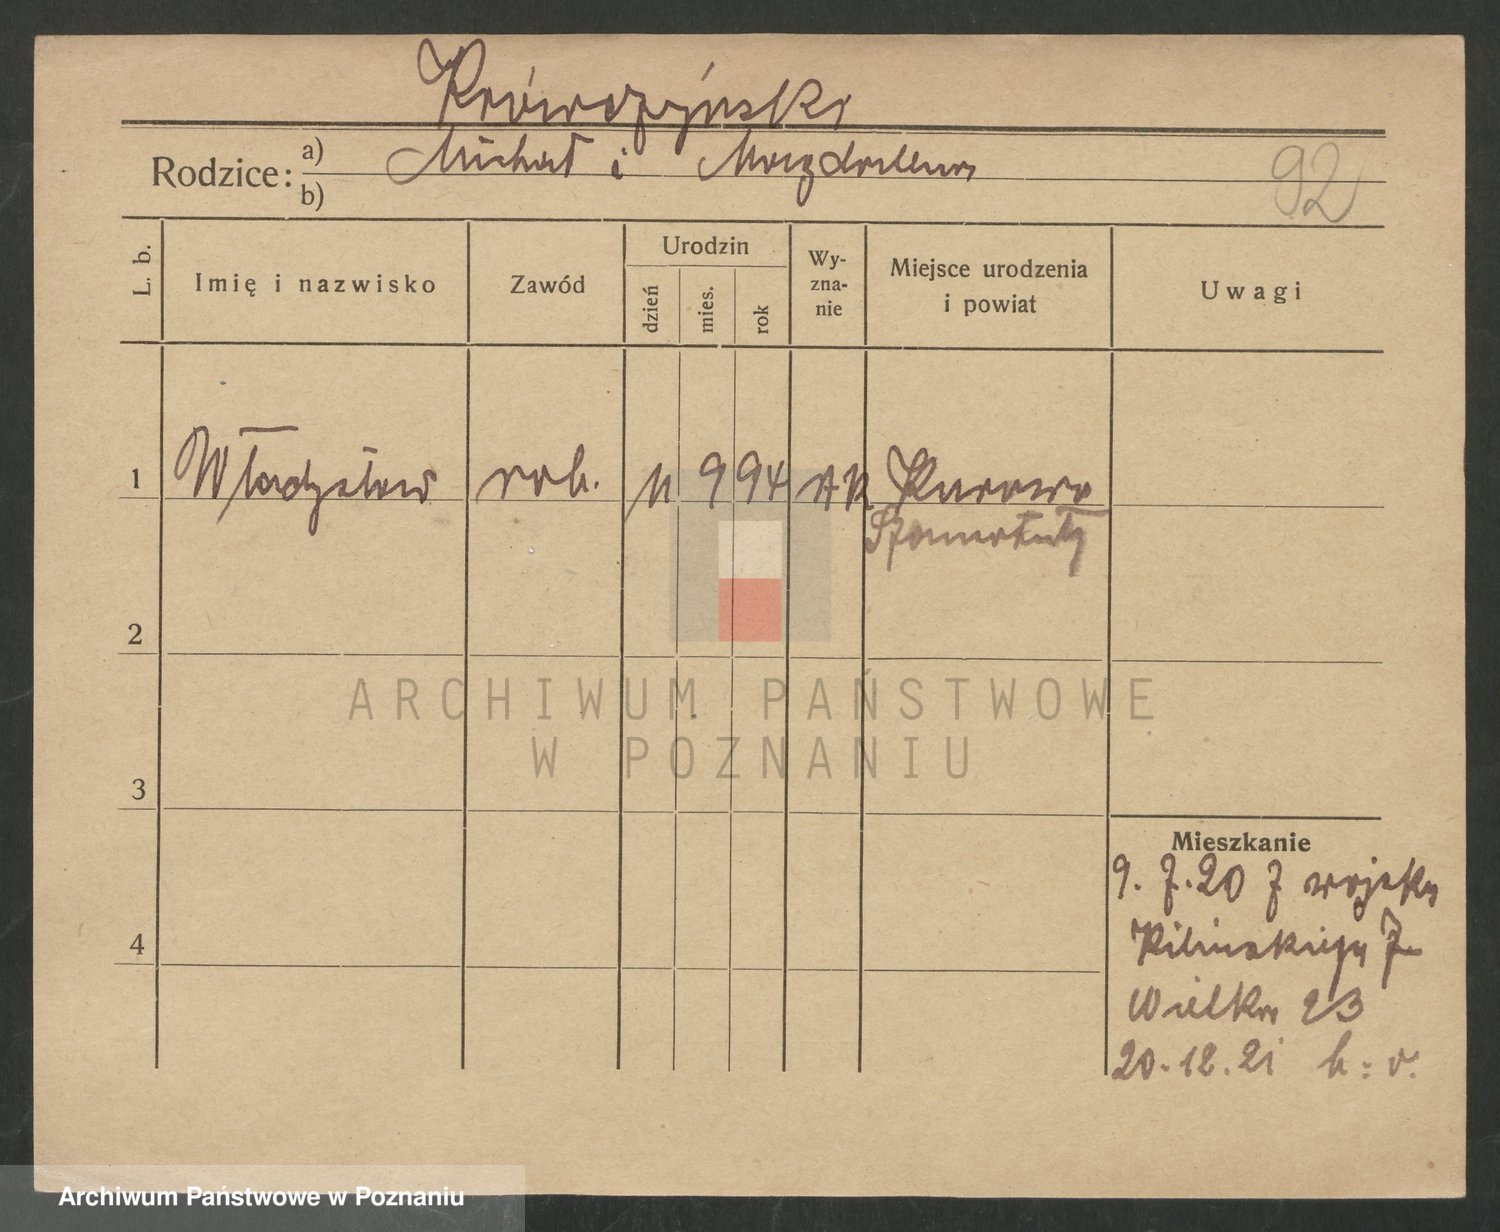 Krówczyński
Rodzice: a) Michał i Magdalena
b)
92
L. b. Imię i nazwisko Zawód Urodzin dzień mies. rok Wy-zna-nie Miejsce urodzenia i powiat Uwagi
1 Władysław rob. 11 9 94 Kurowo
Szamotuły
2
ARCHIWUM PAŃSTWOWE
W POZNANIU
3
Mieszkanie
9. 7. 20 z wojska
4 Kilińskiego 7
Wielka 23
20. 12. 21
Archiwum Państwowe w Poznaniu